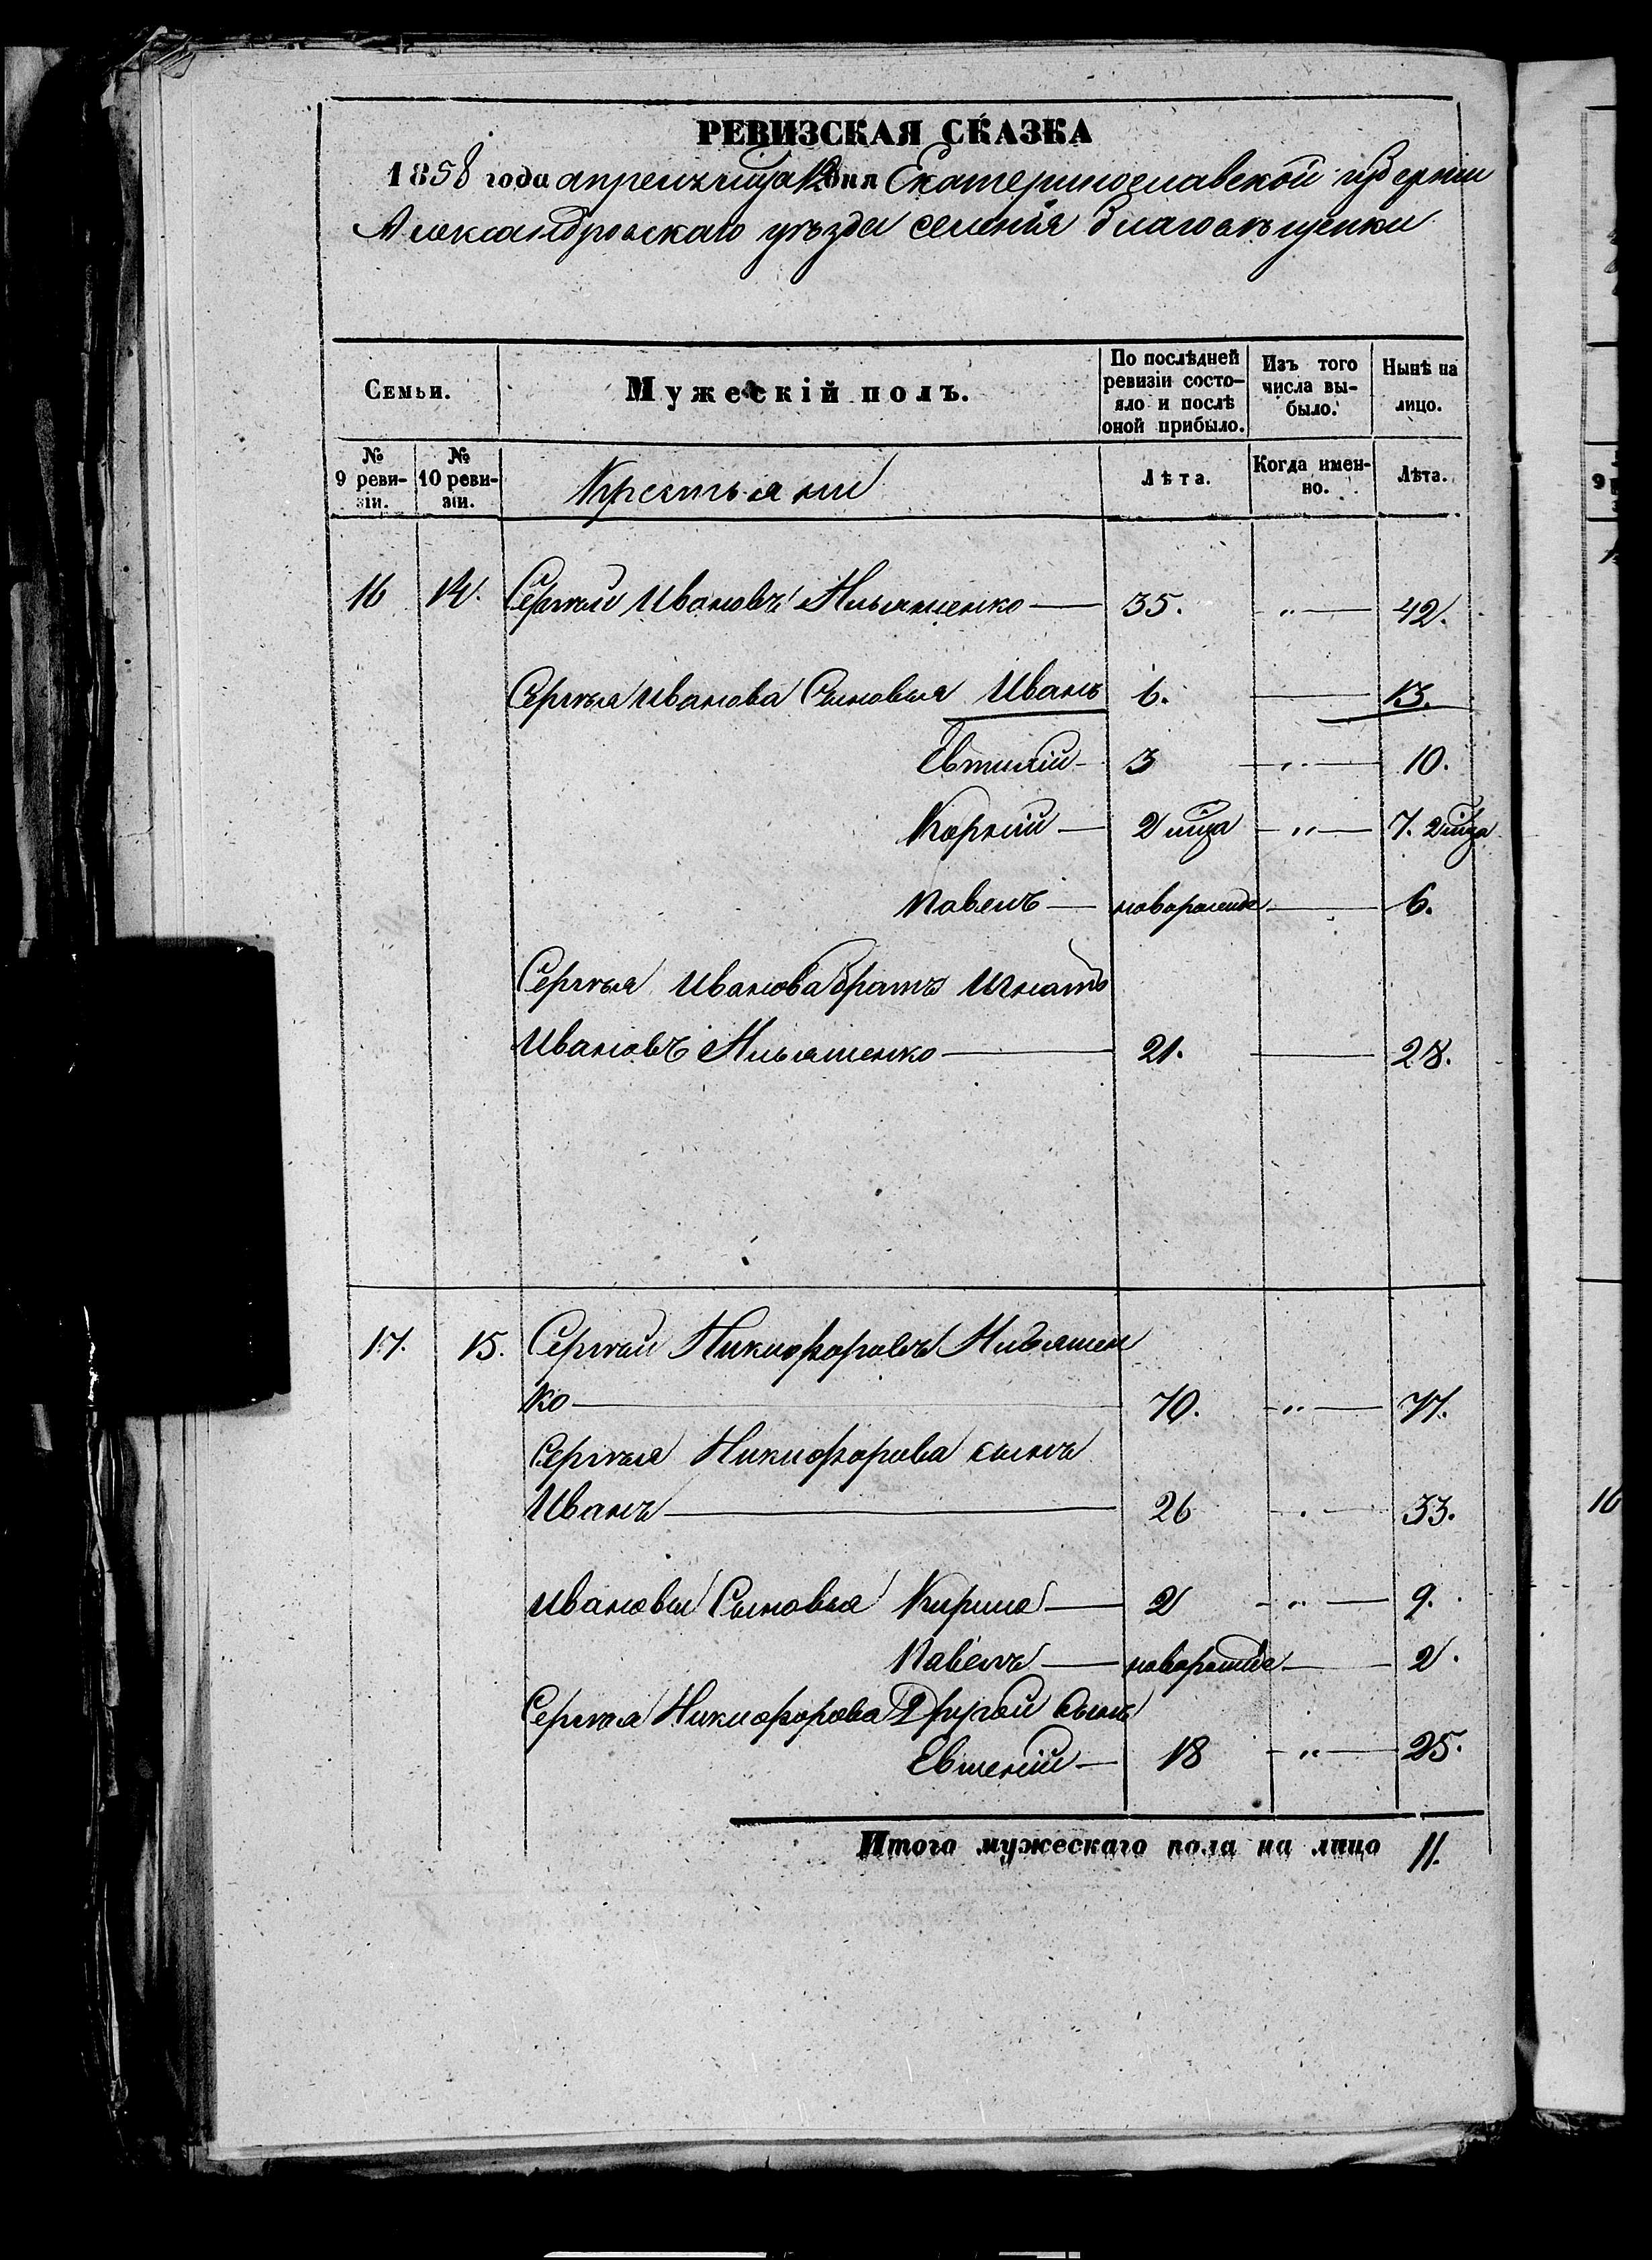 РЕВИЗСКАЯ СКАЗКА
1858 года апреля мца 12 дня Екатеринославской губернии
Александровскаго уѣзда селенія Благовѣщенки
Семьи.
Мужескій полъ.
По послѣдней ревизіи состо-
яло и послѣ
оной прибыло.
Изъ того
числа вы-
было.
Нынѣ на
лицо.
№
9 реви-
зіи.
№
10 реви-
зіи.
Крестьяни
Лѣта.
Когда имен-
но.
Лѣта.
16 14. Сергѣй Ивановъ Ильяшенко — 35. „ — 42.
Сергѣя Иванова Сыновья Иванъ 6. — 13.
Евтихій 3 — „ — 10.
Корній — 2 мца — „ — 7. 2 мца
Павелъ — новорожде — 6.
Сергѣя Иванова братъ Игнатъ
Ивановъ Ильяшенко — 21. — 28.
17. 15. Сергѣй Никифоровъ Ильяшен
ко — 70. — „ — 77.
Сергѣя Никифорова сынъ
Иванъ — 26 — 33.
Ивановы Сыновья Кирило — 2 — „ — 9.
Павелъ — новорожде — 2.
Сергѣя Никифорова Другой Сынъ
Евгеній — 18 — „ — 25.
Итого мужескаго пола на лицо 11.
9
16